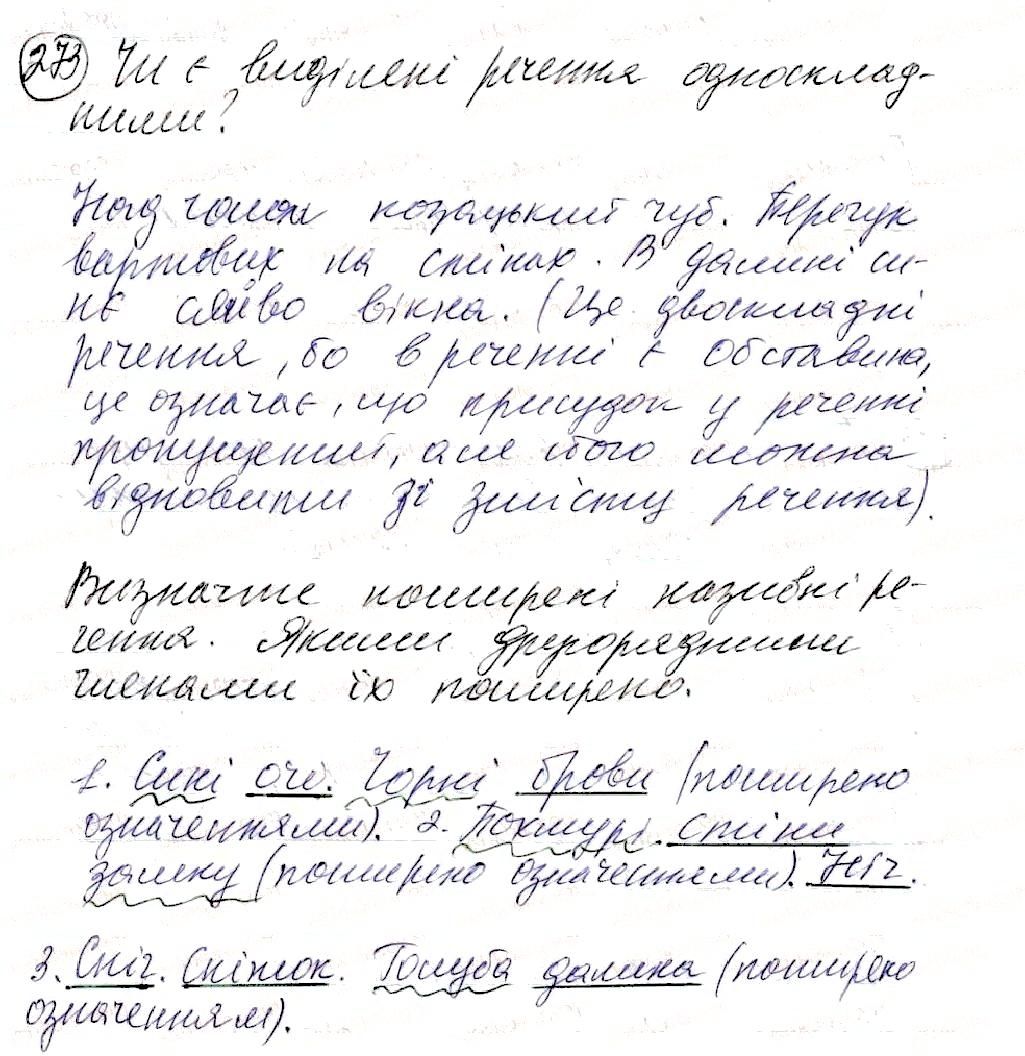 273 Чи є виділені речення односклад-
ними?
Над чолом козацький чуб. Перегук
вартових на стінах. В далині си-
нє сяйво вікна. (Це двоскладні
речення, бо в реченні є обставина,
це означає, що присудок у реченні
пропущений, але його можна
відновити зі змісту речення).
Визначте поширені називні ре-
чення. Якими другорядними
членами їх поширено.
1. Сині очі. Чорні брови (поширено
означеннями). 2. Похмурі стіни
замку (поширено означеннями). Ніч.
3. Сніг. Сніжок. Голуба далина (поширено
означенням).